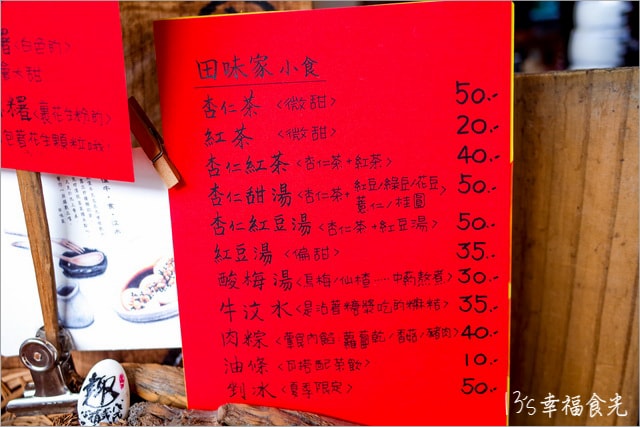 田味家小食
杏仁茶〈微甜〉 50.-
紅茶〈微甜〉 20.-
杏仁紅茶〈杏仁茶+紅茶〉 40.-
杏仁甜湯〈杏仁茶+紅豆/綠豆/花豆/薏仁/桂圓〉 50.-
杏仁紅豆湯〈杏仁茶+紅豆湯〉 50.-
紅豆湯〈偏甜〉 35.-
酸梅湯〈烏梅/仙楂…中藥熬煮〉 30.-
牛汶水〈是沾著糖漿吃的麻糬〉 35.-
肉粽〈餡 蘿蔔乾/香菇/豬肉〉 40.-
油條〈可搭配茶飲〉 10.-
剉冰〈夏季限定〉 50.-
〈白色的〉
大甜
糬〈裹花生粉的〉
包著花生顆粒哦
13's幸福食光